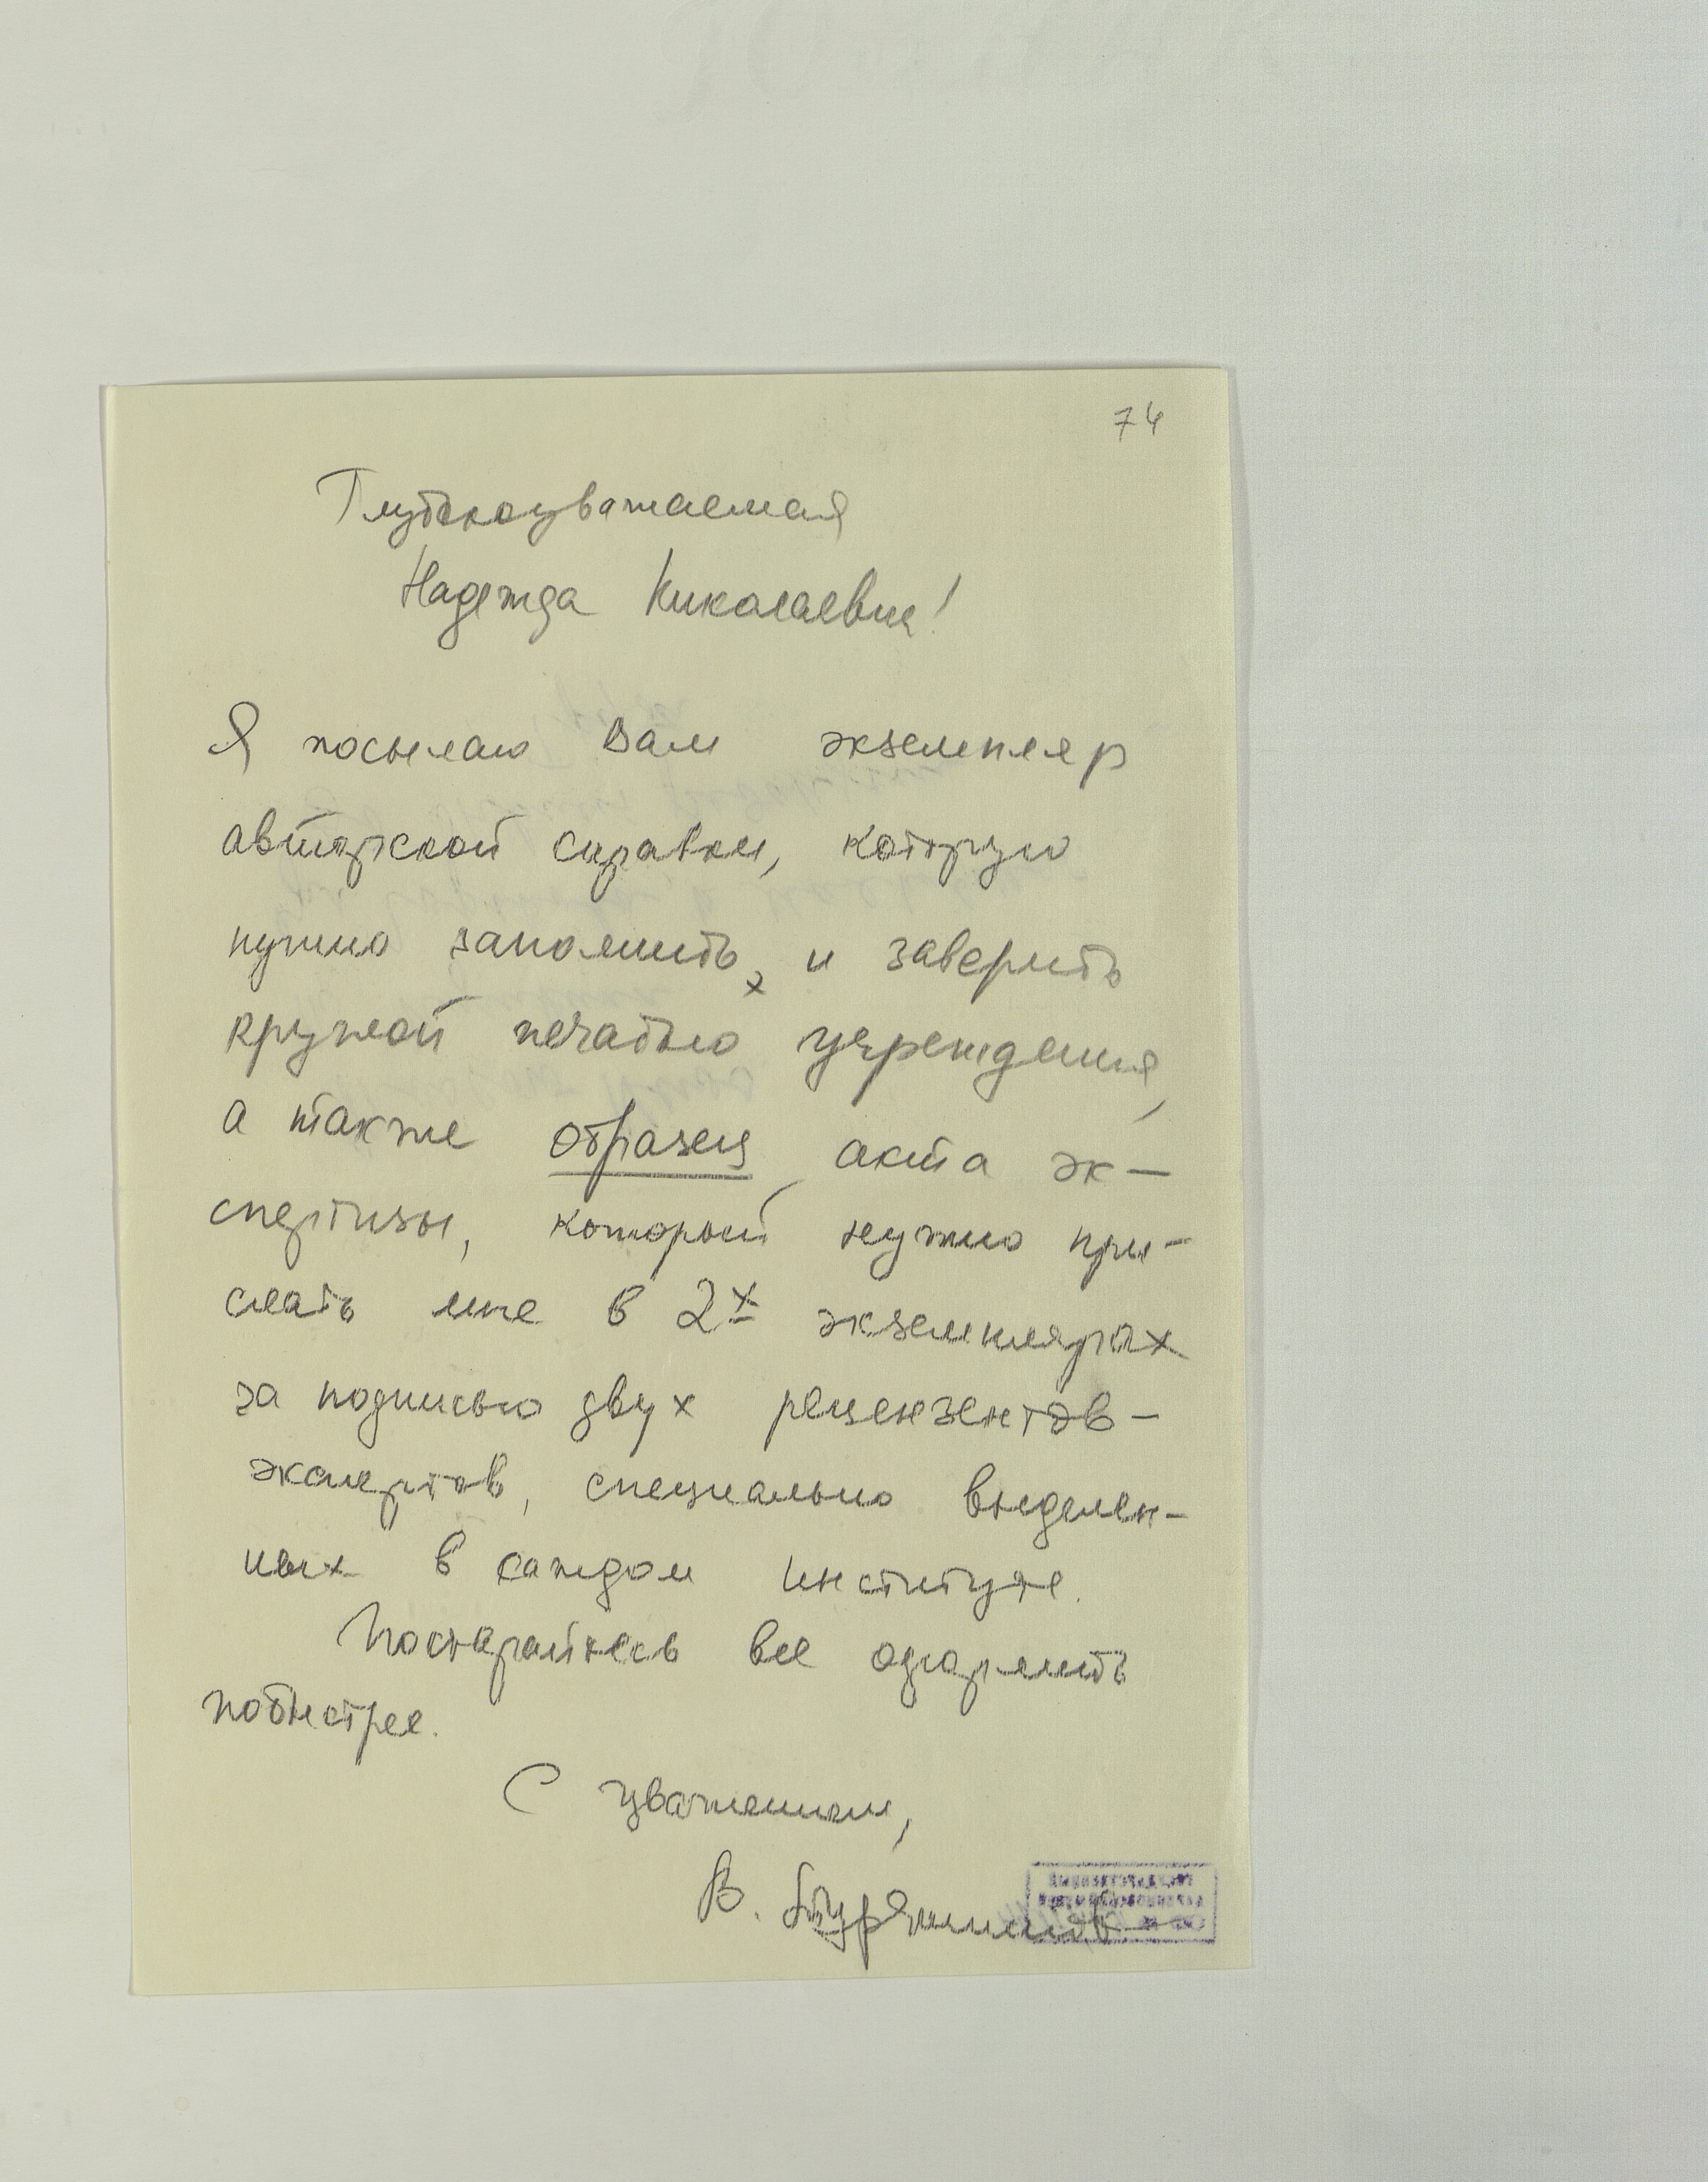 74
Глубокоуважаемая
Надежда Николаевна!
Я посылаю Вам экземпляр
авторской справки, которую
нужно заполнить, и заверить
круглой печатью учреждения,
а также образец акта эк-
спертизы, который нужно при-
слать мне в 2х экземплярах
за подписью двух рецензентов-
экспертов, специально выделен-
ных в каждом институте.
Постарайтесь все оформить
побыстрее.
С уважением,
В.